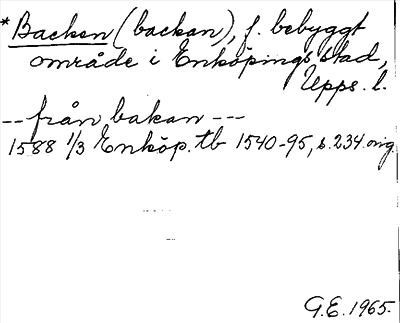 *Backen (backan), f. bebyggt
område i Enköpings stad,
Upps. l.
-- från bakan ---
1588 1/3 Enköp. tb 1540-95, s. 234. orig.
G.E. 1965.